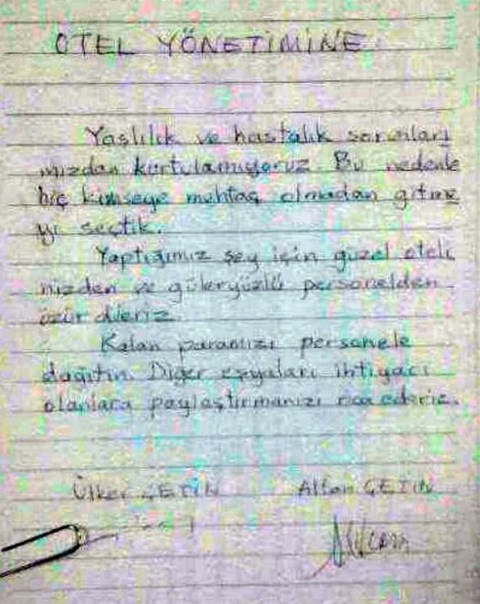 OTEL YÖNETİMİNE
Yaşlılık ve hastalık sorunları
mızdan kurtulamıyoruz. Bu nedenle
hiç kimseye muhtaç olmadan gitme
yi seçtik.
Yaptığımız şey için güzel oteli
nizden ve güleryüzlü personelden
özür dileriz.
Kalan paramızı personele
dağıtın. Diğer eşyaları ihtiyacı
olanlara paylaştırmanızı rica ederiz.
Ülker ÇETİN Alfan ÇETİN